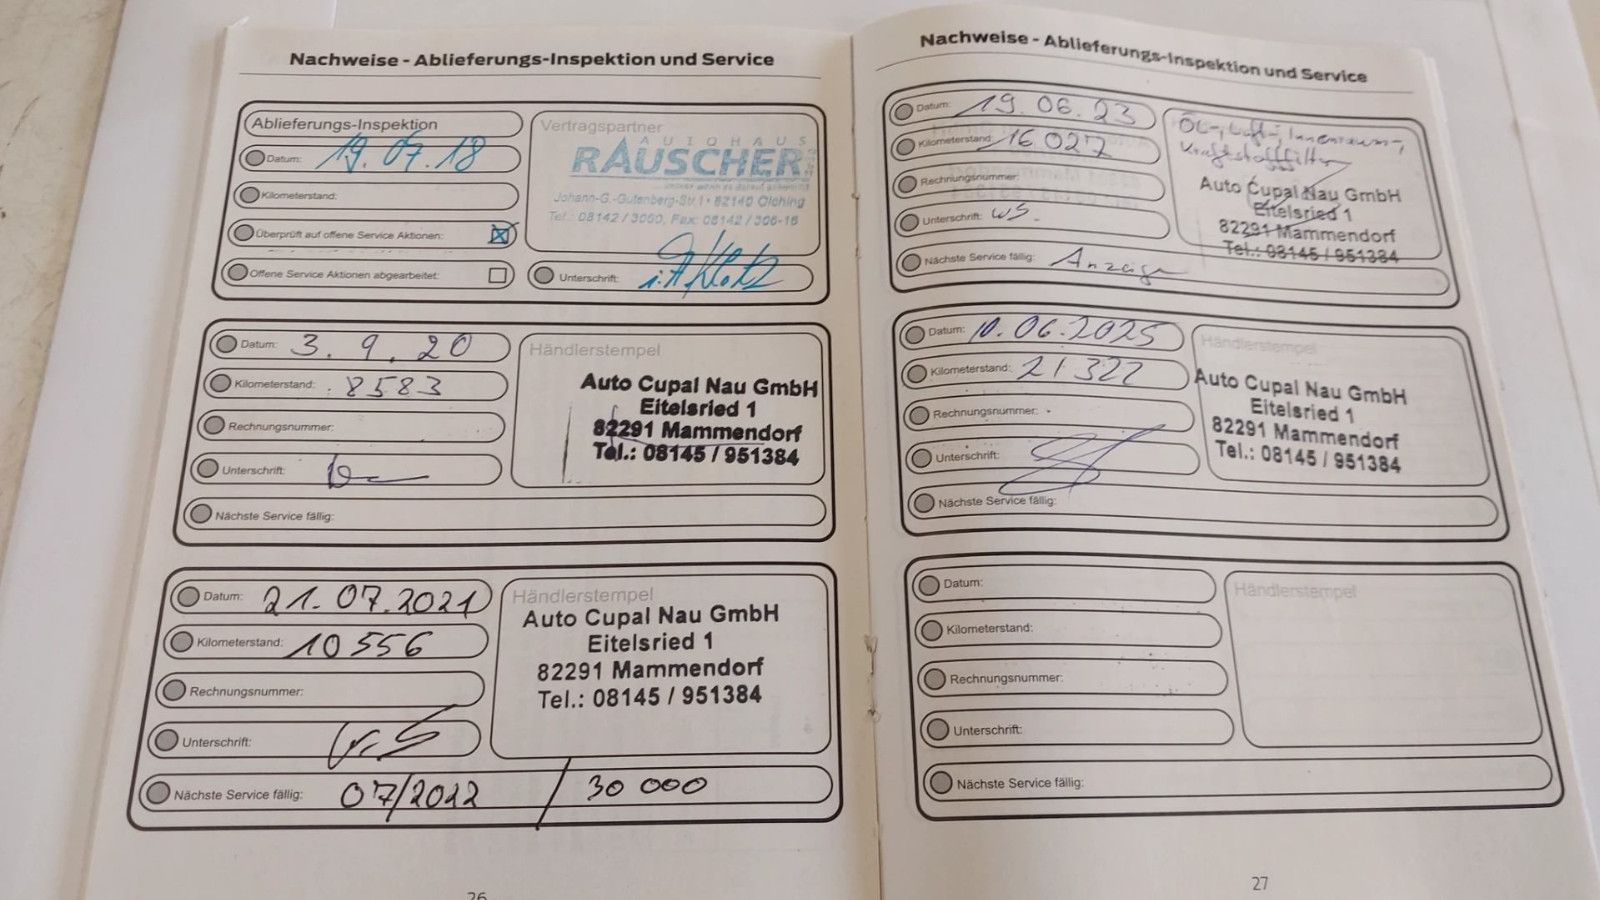 Nachweise - Ablieferungs-Inspektion und Service
Ablieferungs-Inspektion
Datum: 19.07.18
Kilometerstand:
Überprüft auf offene Service Aktionen:
Offene Service Aktionen abgearbeitet:
Vertragspartner
AUTOHAUS
RAUSCHER
Johann-G.-Gutenberg-Str.1 • 82140 Olching
Tel.: 08142 / 3060, Fax: 08142 / 306-16
Unterschrift:
Datum: 3.9.20
Kilometerstand: 8583
Rechnungsnummer:
Unterschrift:
Nächste Service fällig:
Händlerstempel
Auto Cupal Nau GmbH
Eitelsried 1
82291 Mammendorf
Tel.: 08145 / 951384
Datum: 21.07.2021
Kilometerstand: 10556
Rechnungsnummer:
Unterschrift:
Nächste Service fällig: 07/2022 / 30 000
Händlerstempel
Auto Cupal Nau GmbH
Eitelsried 1
82291 Mammendorf
Tel.: 08145 / 951384
26
Nachweise - Ablieferungs-Inspektion und Service
Datum: 19.06.23
Kilometerstand: 16 027
Rechnungsnummer:
Unterschrift: WS.
Nächste Service fällig: Anzeige
Öl-, Luft-, Innenraum-,
Kraftstofffilter
Auto Cupal Nau GmbH
Eitelsried 1
82291 Mammendorf
Tel.: 08145 / 951384
Datum: 10.06.2025
Kilometerstand: 21322
Rechnungsnummer:
Unterschrift:
Nächste Service fällig:
Händlerstempel
Auto Cupal Nau GmbH
Eitelsried 1
82291 Mammendorf
Tel.: 08145 / 951384
Datum:
Kilometerstand:
Rechnungsnummer:
Unterschrift:
Nächste Service fällig:
Händlerstempel
27